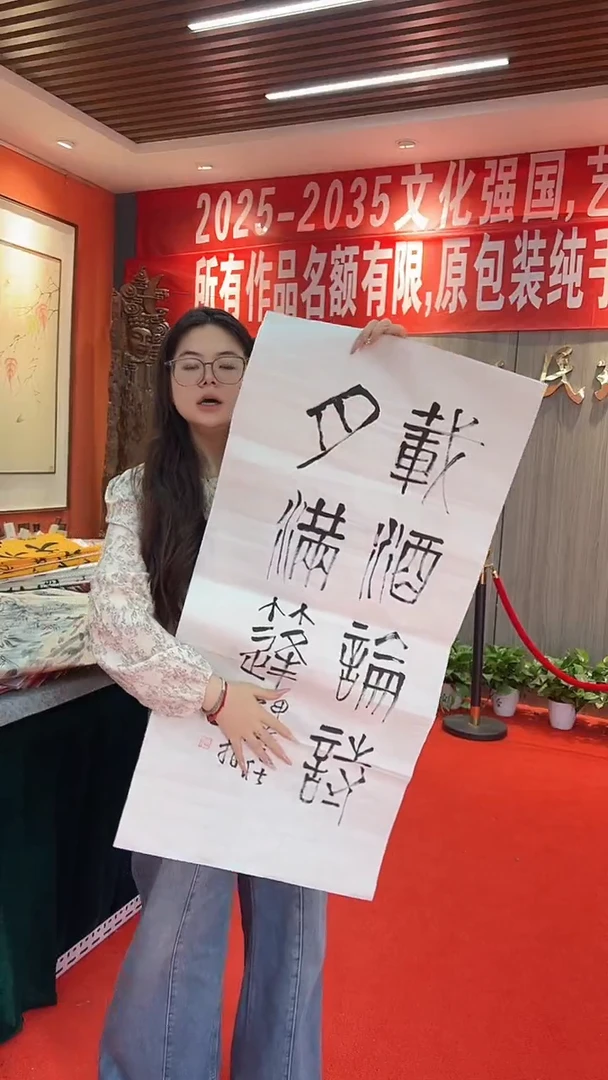 2025-2035文化强国,艺
所有作品名额有限,原包装纯手
民
載酒論詩
月滿篷